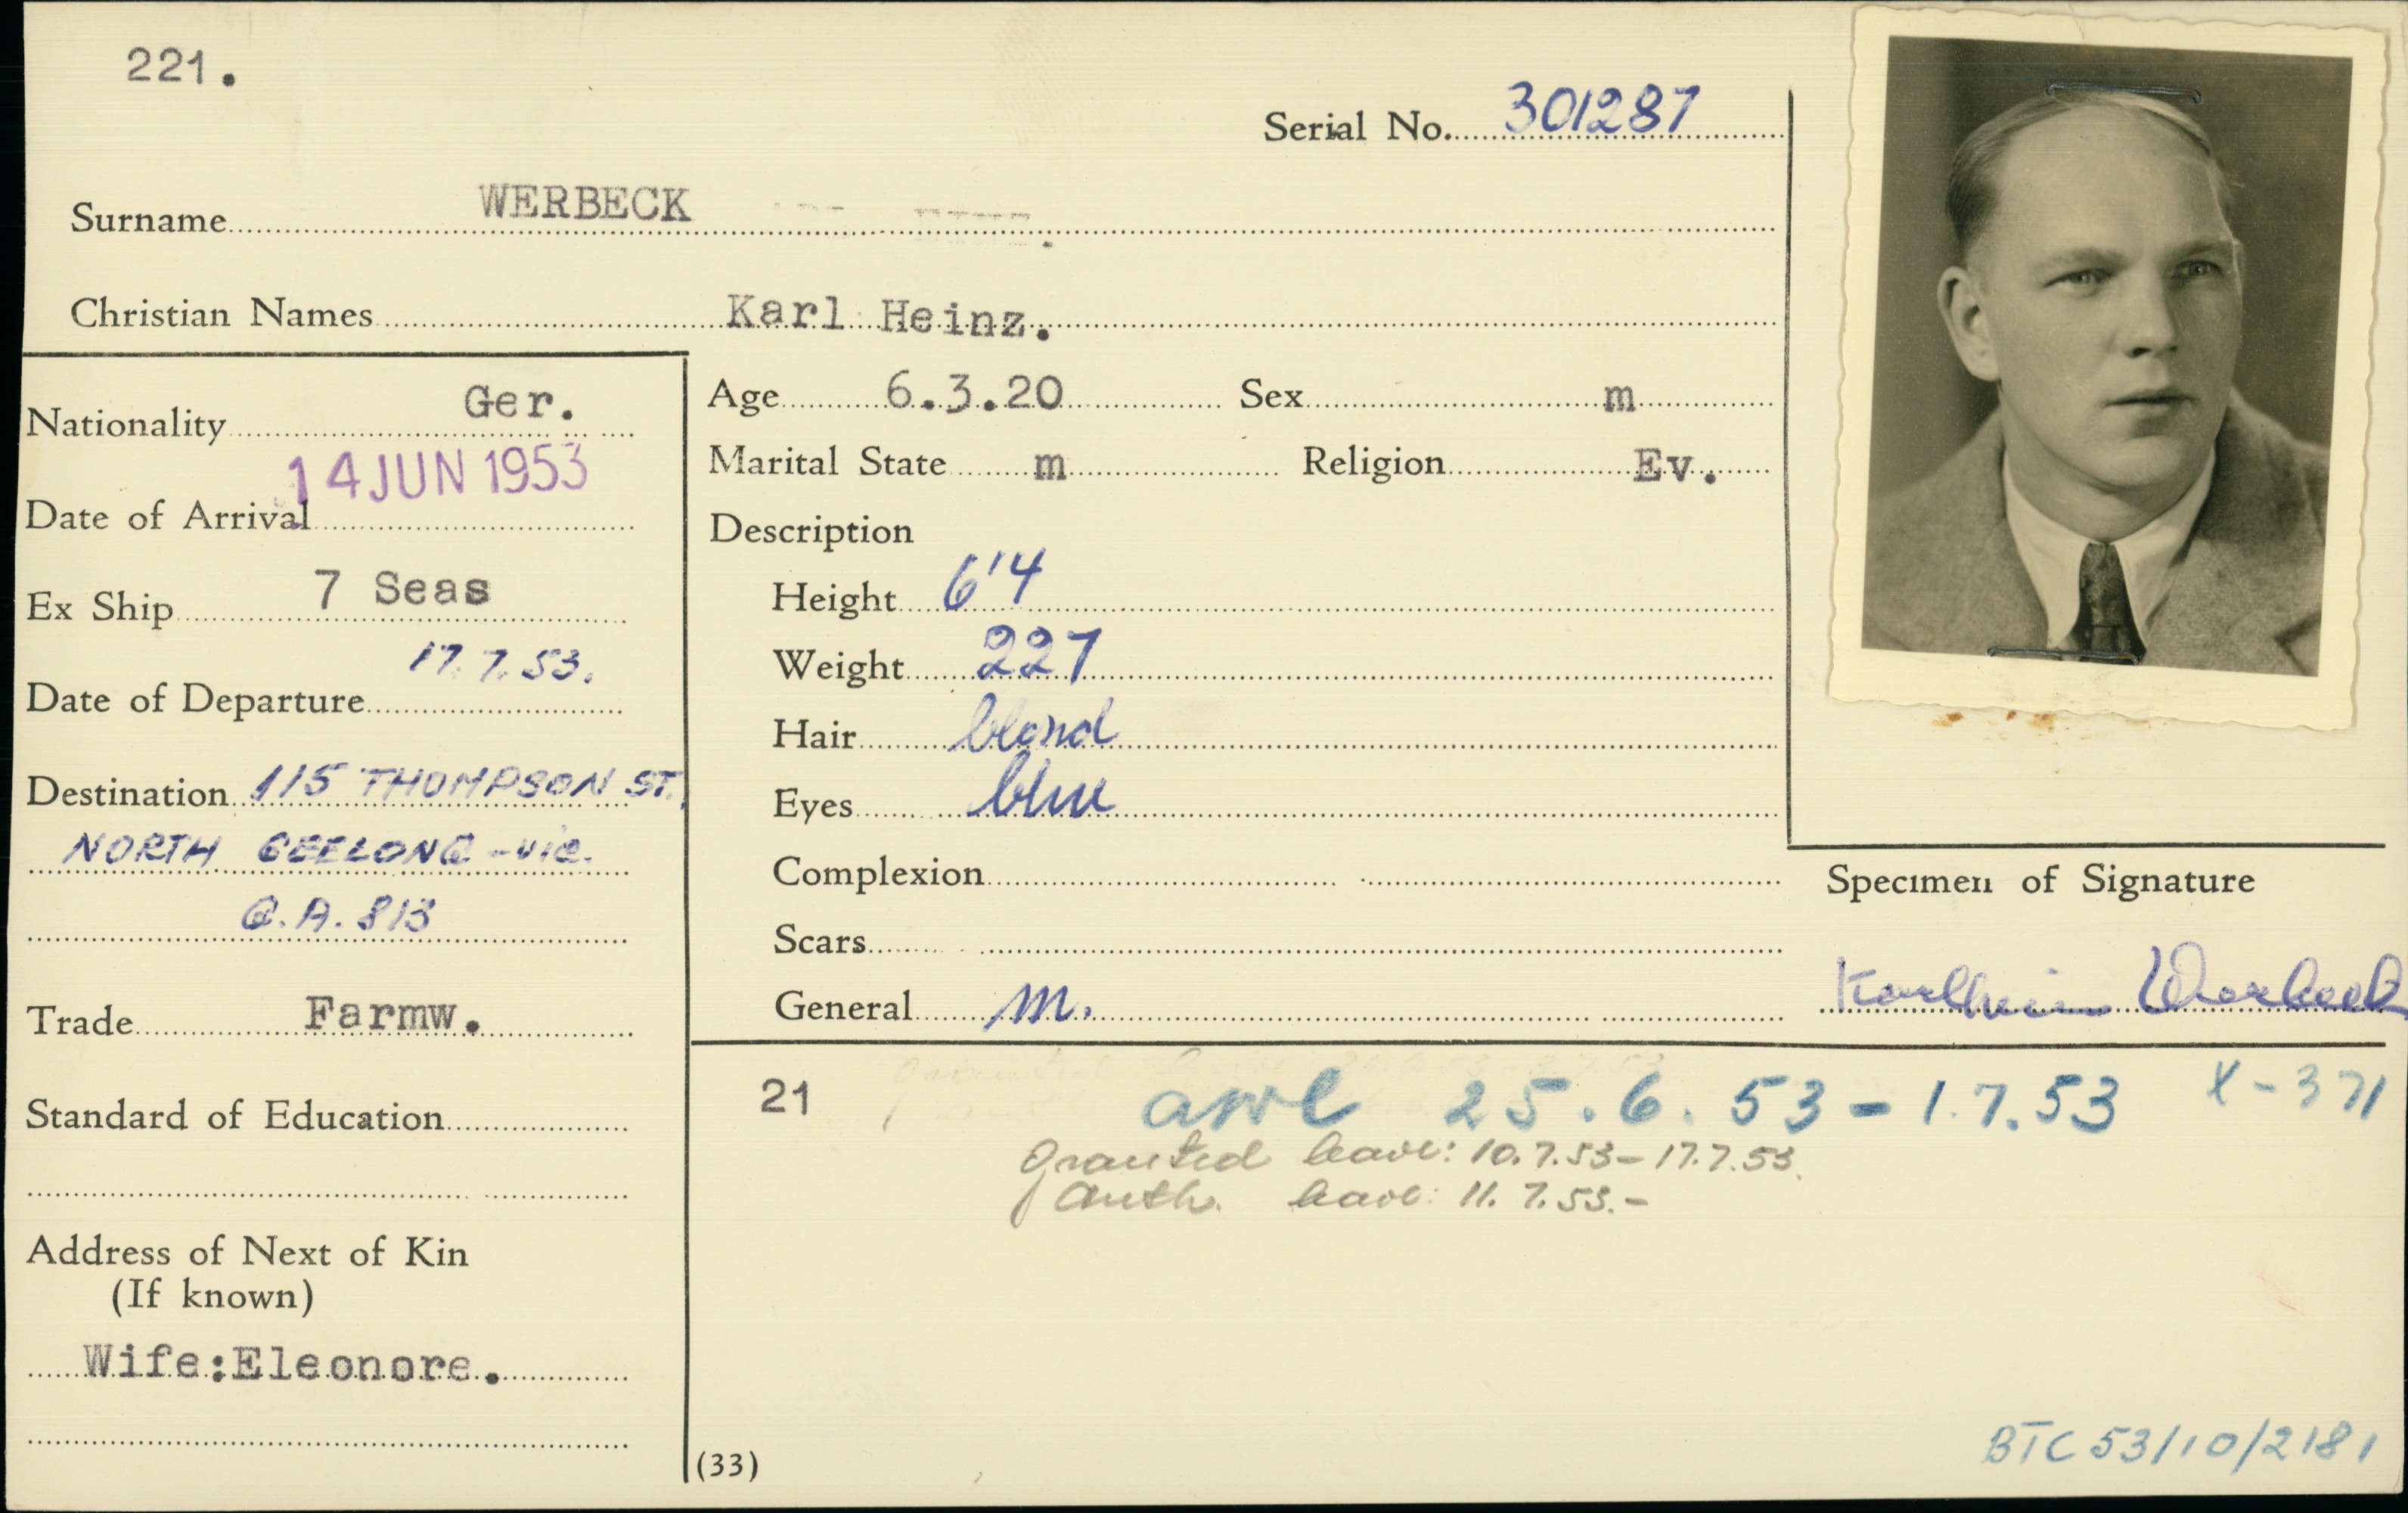 221.
Serial No. 301287
Surname WERBECK
Christian Names Karl Heinz.
Nationality Ger.
Date of Arrival 14 JUN 1953
Ex Ship 7 Seas
Date of Departure 17.7.53.
Destination 115 THOMPSON ST.,
NORTH GEELONG - Vic.
G.A. 813
Trade Farmw.
Standard of Education
Address of Next of Kin
(If known)
Wife:Eleonore.
Age 6.3.20 Sex m
Marital State m Religion Ev.
Description
Height 6'4
Weight 227
Hair blond
Eyes blue
Complexion
Scars
General m.
Specimen of Signature
Karlheinz Werbeck
21 awl 25.6.53 - 1.7.53 X-371
Granted leave: 10.7.53 - 17.7.53.
Auth. leave: 11.7.53. -
(33)
BTC 53/10/2181